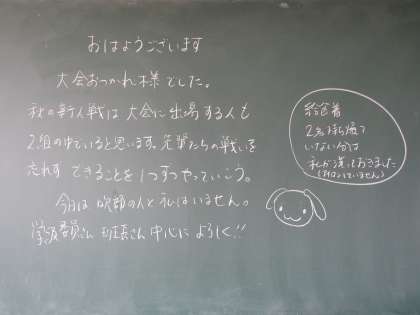 おはようございます
大会おつかれ様でした。
秋の新人戦は大会に出場する人も
2組の中でいると思います。先輩たちの戦いを
忘れず できることを1つずつやっていこう。
今日は 吹部の人と私はいません。
学級委員さん 班長さん 中心に よろしく!!
給食着
2名持ち帰って
いない分は
私が洗っておきました
(アイロンしていません)